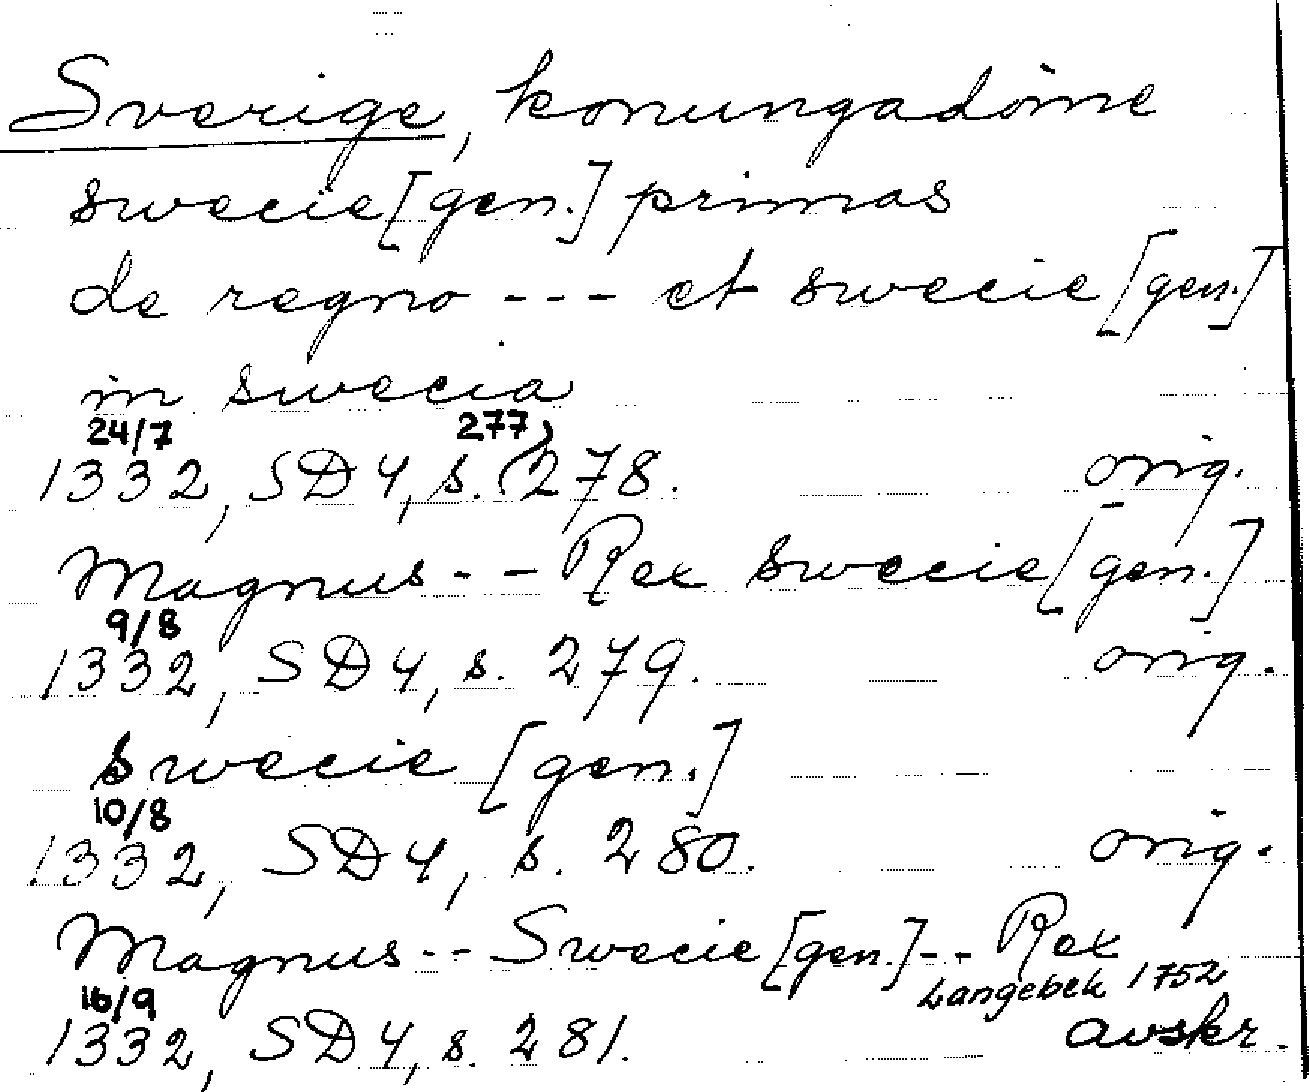 Sverige, konungadöme
swecie [gen.] primas
de regno --- et swecie [gen.]
in swecia
24/7 277,
1332, SD4, s. (278. orig.
Magnus -- Rex swecie [gen.]
9/8
1332, SD4, s. 279. orig.
swecie [gen.]
10/8
1332, SD4, s. 280. orig.
Magnus -- Swecie [gen.] -- Rex
16/9 Langebek 1752
1332, SD4, s. 281. avskr.